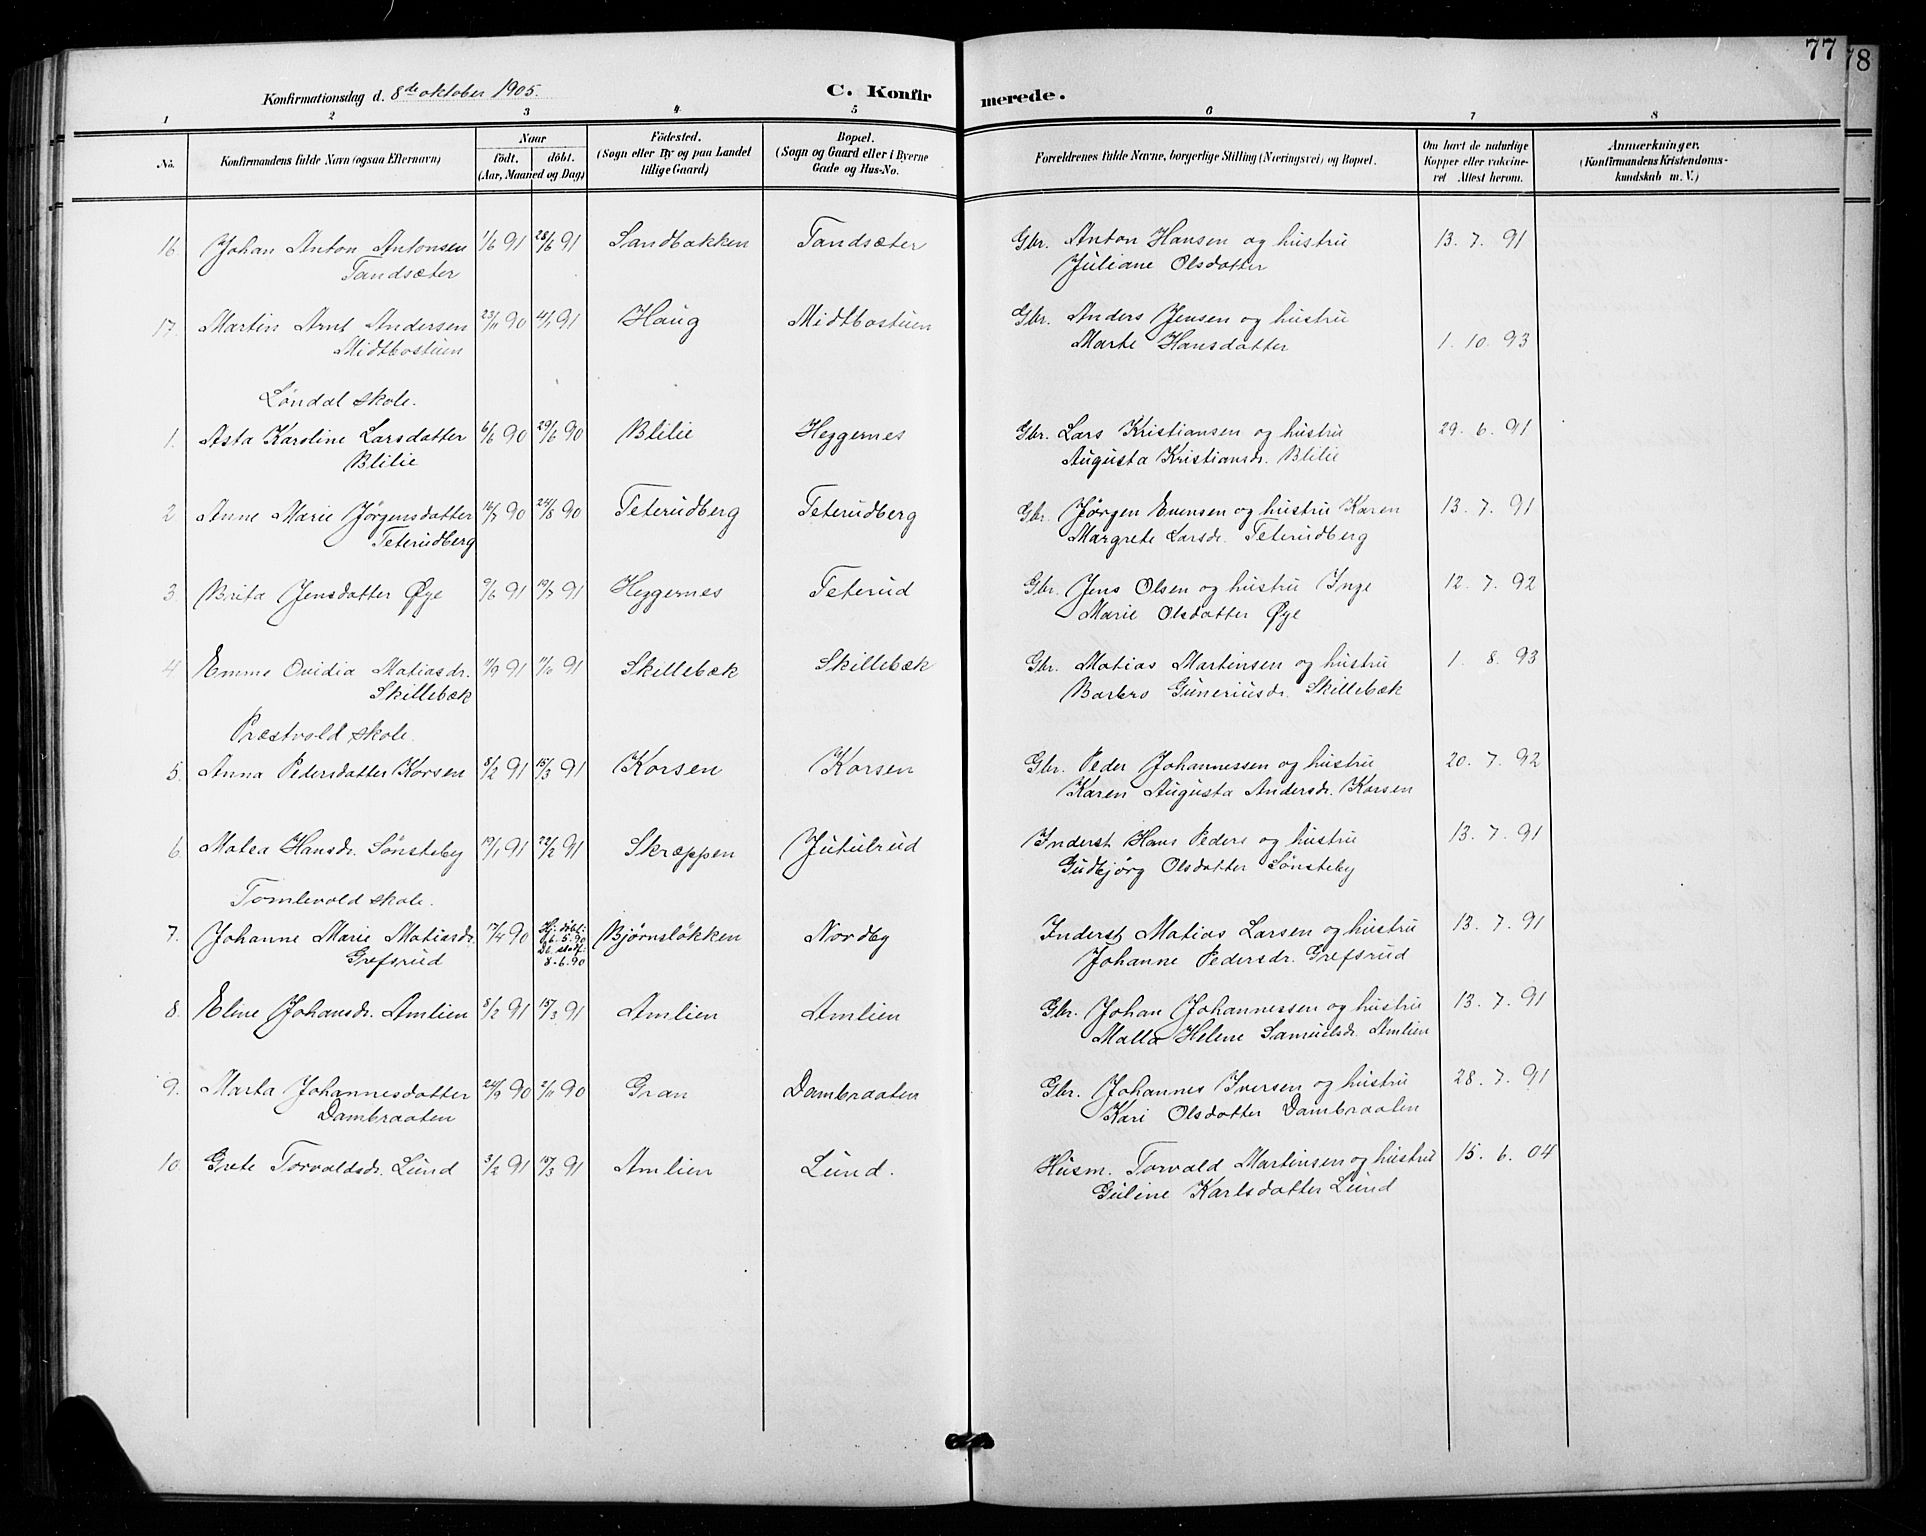 77
78
Konfirmationsdag d. 8de oktober 1905. C. Konfirmerede.
1 2 3 4 5 6 7 8
No. Konfirmandens fulde Navn (ogsaa Efternavn) Naar födt. döbt. (Aar, Maaned og Dag) Födested. (Sogn eller By og paa Landet tillige Gaard) Bopæl. (Sogn og Gaard eller i Byerne Gade og Hus-No. Forældrenes fulde Navne, borgerlige Stilling (Næringsvei) og Bopæl. Om havt de naturlige Kopper eller vakcineret Attest herom. Anmerkninger, (Konfirmandens Kristendomskundskab m. V.)
16. Johan Anton Antonsen 1/6 91 28/6 91 Sandbakken Tandsæter Gbr. Anton Hansen og hustru 13. 7. 91
Tandsæter Juliane Olsdatter
17. Martin Arnt Andersen 23/11 90 4/1 91 Haug Midtbostuen Gbr. Anders Jensen og hustru
Midtbostuen Marte Hansdatter 1. 10. 93
Løndal skole.
1. Asta Karoline Larsdatter 6/6 90 29/6 90 Blilie Heggernes Gbr. Lars Kristiansen og hustru 29. 6. 91
Blilie Augusta Kristiansdr. Blilie
2 Anne Marie Jørgensdatter 16/7 90 24/8 90 Teterudberg Teterudberg Gbr. Jørgen Evensen og hustru Karen 13. 7. 91
Teterudberg Margrete Larsdr. Teterudberg
3. Brita Jensdatter Øye 9/6 91 19/7 91 Heggernes Teterud Gbr. Jens Olsen og hustru Inge 12. 7. 92
Marie Olsdatter Øye
4. Emme Ovidia Matiasdr. 17/9 91 91 Skillebæk Skillebæk Gbr. Matias Martinsen og hustru 1. 8. 93
Skillebæk Barbro Guneriusdr. Skillebæk
Præstvold skole.
5. Anna Pedersdatter Korsen 8/2 91 15/3 91 Korsen Korsen Gbr. Peder Johannessen og hustru 20. 7. 92
Karen Augusta Andersdr. Korsen
6. Matea Hansdr. Sønsteby 19/1 91 22/2 91 Skræppen Jutulrud Inderst Hans Peders og hustru 13. 7. 91
Gudbjørg Olsdatter Sønsteby
Tomlevold skole.
7. Johanne Marie Matiasdr. 17/4 90 Hj. döbt: 6. 5. 90 Db. stadf: 8. 6. 90 Bjørnsløkken Nordby Inderst Matias Larsen og hustru 13. 7. 91
Grefsrud Johanne Pedersdr. Grefsrud
8. Eline Johansdr. Amlien 5/2 91 15/3 91 Amlien Amlien Gbr. Johan Johannessen og hustru 13. 7. 91
Malla Helene Samuelsdr. Amlien
9. Marta Johannesdatter 24/9 90 2/11 90 Gran Dambraaten Gbr. Johannes Iversen og hustru 28. 7. 91
Dambraaten Kari Olsdatter Dambraaten
10. Grete Torvaldsdr. Lund 3/2 91 15/3 91 Amlien Lund. Husm. Torvald Martinsen og hustru 15. 6. 04
Guline Karlsdatter Lund